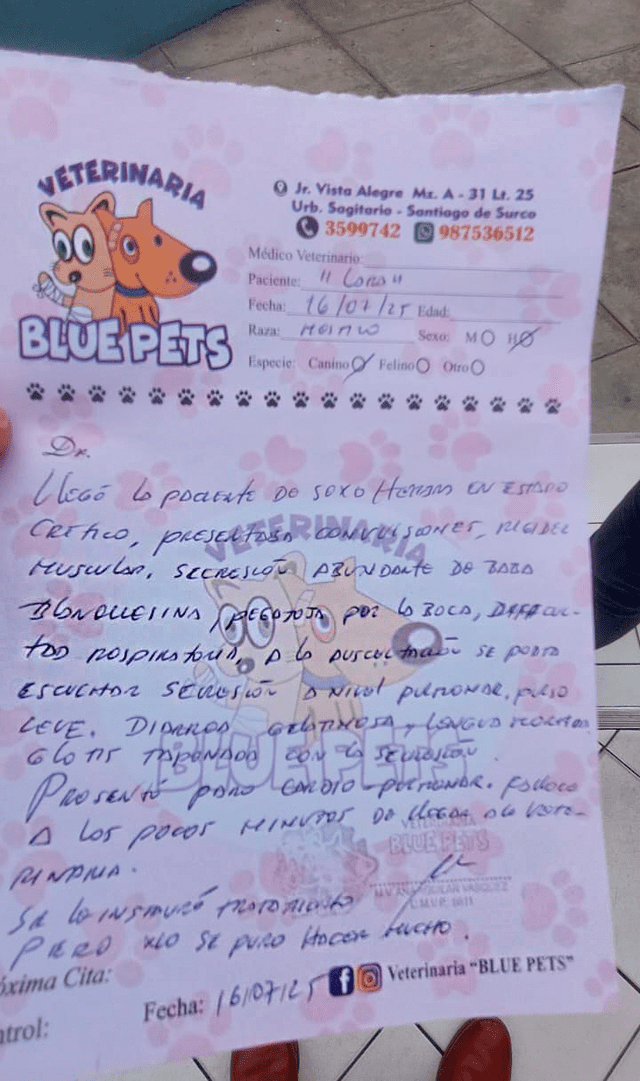 VETERINARIA
BLUE PETS
Jr. Vista Alegre Mz. A - 31 Lt. 25
Urb. Sagitario - Santiago de Surco
3599742 987536512
Médico Veterinario:
Paciente: "Lana"
Fecha: 16/07/25 Edad:
Raza: Sexo: M H
Especie: Canino Felino Otro
Dx.
Llegó la paciente de sexo Hembra en estado
crítico, presentaba convulsiones, rigidez
muscular, secresión abundante de baba
blanquesina, pegajosa por la boca, dificul-
tad respiratoria, a la auscultación se podia
escuchar secresión a nivel pulmonar, pulso
leve, diarrea gelatinosa, lengua
glotis taponada con la secresión.
Presentó paro cardio-pulmonar. Fallece
a los pocos minutos de llegar a la vete-
rinaria.
Se le instauró tratamiento
pero no se pudo hacer mucho.
VETERINARIA
BLUE PETS
VASQUEZ
C.M.V.P.
óxima Cita:
Fecha: 16/07/25 Veterinaria "BLUE PETS"
ntrol: